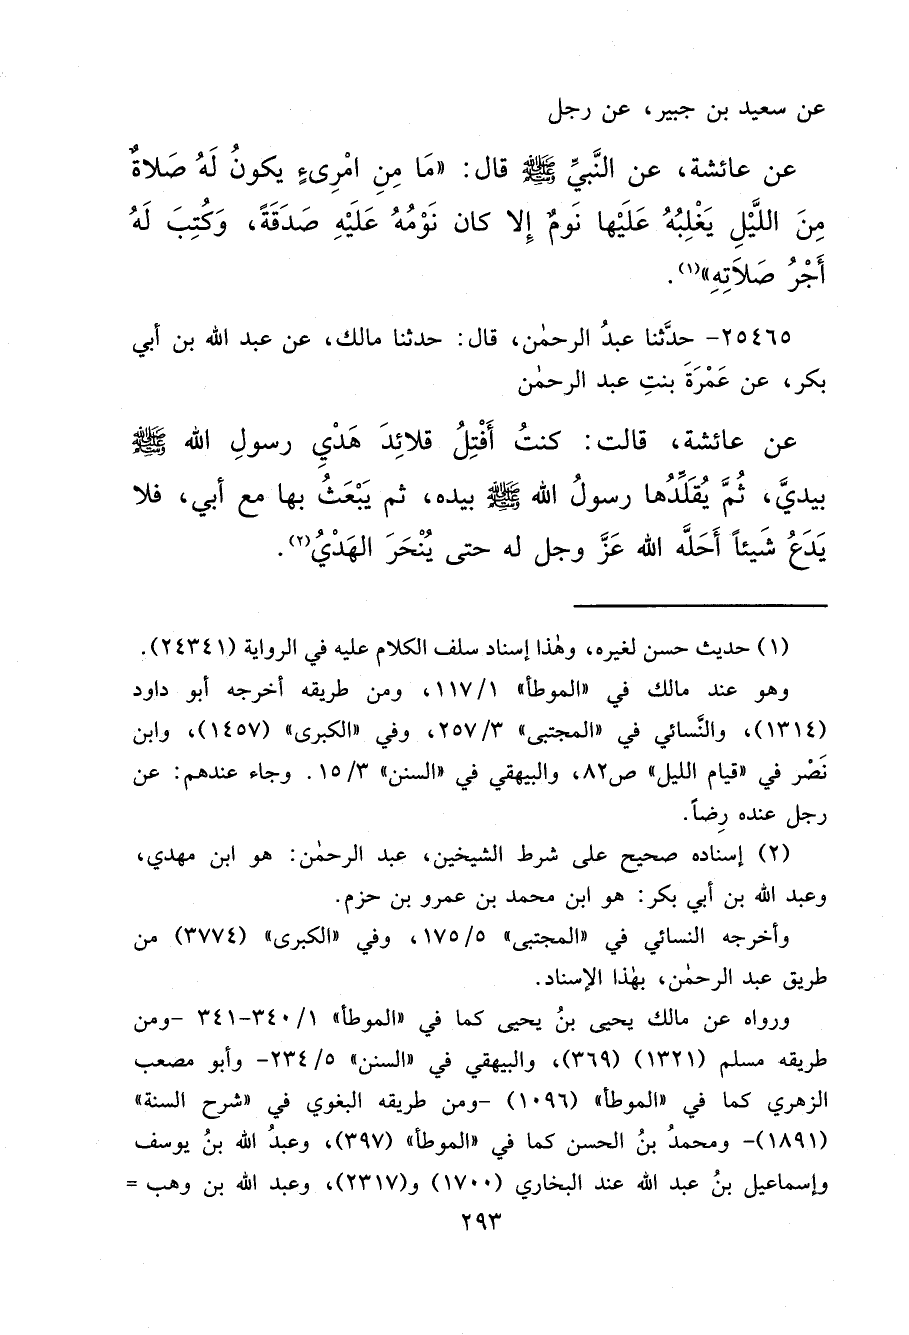 عن سعيد بن جبير، عن رجل
عن عائشة، عن النَّبيِّ ﷺ قال: «مَا مِنِ امْرِىءٍ يكونُ لَهُ صَلاةٌ
مِنَ اللَّيْلِ يَغْلِبُهُ عَلَيْها نَومٌ إِلا كان نَوْمُهُ عَلَيْهِ صَدَقَةً، وَكُتِبَ لَهُ
أَجْرُ صَلاَتِهِ»(١).
٢٥٤٦٥- حدَّثنا عبدُ الرحمٰن، قال: حدثنا مالك، عن عبد الله بن أبي
بكر، عن عَمْرَةَ بنتِ عبد الرحمٰن
عن عائشة، قالت: كنتُ أَفْتِلُ قلائِدَ هَدْيِ رسولِ الله ﷺ
بيديَّ، ثُمَّ يُقَلِّدُها رسولُ الله ﷺ بيده، ثم يَبْعَثُ بها مع أبي، فلا
يَدَعُ شَيئاً أَحَلَّه الله عَزَّ وجل له حتى يُنْحَرَ الهَدْيُ(٢).
(١) حديث حسن لغيره، وهٰذا إسناد سلف الكلام عليه في الرواية (٢٤٣٤١).
وهو عند مالك في «الموطأ» ١١٧/١، ومن طريقه أخرجه أبو داود
(١٣١٤)، والنَّسائي في «المجتبى» ٢٥٧/٣، وفي «الكبرى» (١٤٥٧)، وابن
نَصْر في «قيام الليل» ص٨٢، والبيهقي في «السنن» ١٥/٣. وجاء عندهم: عن
رجل عنده رِضاً.
(٢) إسناده صحيح على شرط الشيخين، عبد الرحمٰن: هو ابن مهدي،
وعبد الله بن أبي بكر: هو ابن محمد بن عمرو بن حزم.
وأخرجه النسائي في «المجتبى» ١٧٥/٥، وفي «الكبرى» (٣٧٧٤) من
طريق عبد الرحمٰن، بهٰذا الإسناد.
ورواه عن مالك يحيى بنُ يحيى كما في «الموطأ» ٣٤٠/١-٣٤١ -ومن
طريقه مسلم (١٣٢١) (٣٦٩)، والبيهقي في «السنن» ٢٣٤/٥- وأبو مصعب
الزهري كما في «الموطأ» (١٠٩٦) -ومن طريقه البغوي في «شرح السنة»
(١٨٩١)- ومحمدُ بنُ الحسن كما في «الموطأ» (٣٩٧)، وعبدُ الله بنُ يوسف
وإسماعيل بنُ عبد الله عند البخاري (١٧٠٠) و(٢٣١٧)، وعبد الله بن وهب =
٢٩٣